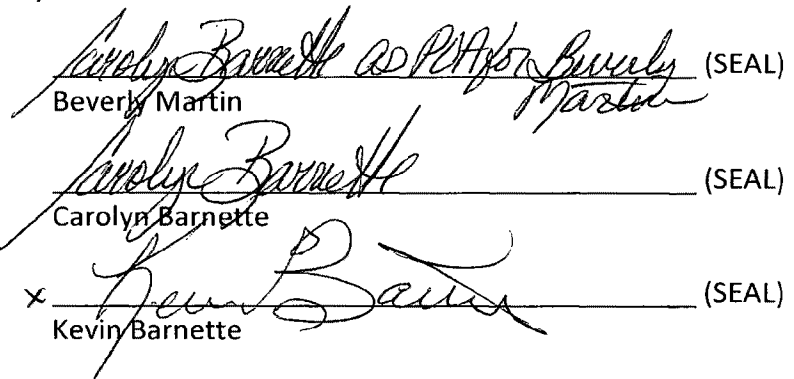 Carolyn Barnette as POA for Beverly (SEAL)
Martin
Beverly Martin
Carolyn Barnette (SEAL)
Carolyn Barnette
x Kevin Barnette (SEAL)
Kevin Barnette